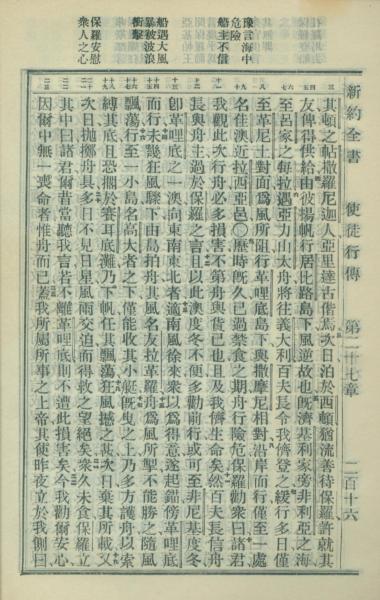 新約全書 使徒行傳 第二十七章 二百十六
豫言海中
危險
船主不信
船遇大風
暴被波浪
衝擊
保羅安慰
衆人之心
其頓之帖撒羅尼迦人亞里達古偕焉次日泊於西頓猶流善待保羅許就其
友俾得供給由彼揚帆行居比路島下風逆故也旣濟基利家旁非利亞之海
至呂家之每拉遇亞力山太舟將往義大利百夫長令我儕登之緩行多日僅
至革尼土對面爲風所阻行革哩底島下與撒摩尼相對沿岸而行僅至一處
名佳澳近拉西亞邑〇歷時旣久已過禁食之期舟行險危保羅勸衆曰諸君
我觀此次行舟必多損害不第舟與貨已也且及我儕生命矣然百夫長信舟
長與舟主過於保羅之言且以此澳度冬不便多勸前行或可至非尼基度冬
卽革哩底之一澳向東南東北者適南風徐來衆以爲得意遂起錨傍革哩底
而行未幾狂風驟下由島拍舟其風名友拉革羅舟爲風所掣不能勝之隨風
飄蕩行至一小島名高大者之下僅能收其小艇旣曳之上乃多方護舟以索
縛其底且恐擱於賽耳底灘乃下帆任其飄蕩狂風撼之甚次日棄其所載又
次日拋擲舟具多日不見日星風雨交迫而得救之望絕矣衆久未食保羅立
其中曰諸君爾昔當聽我言若不離革哩底則不遭此損害矣今我勸爾安心
因爾中無一喪命者惟舟而已蓋我所屬所事之上帝其使昨夜立於我側曰